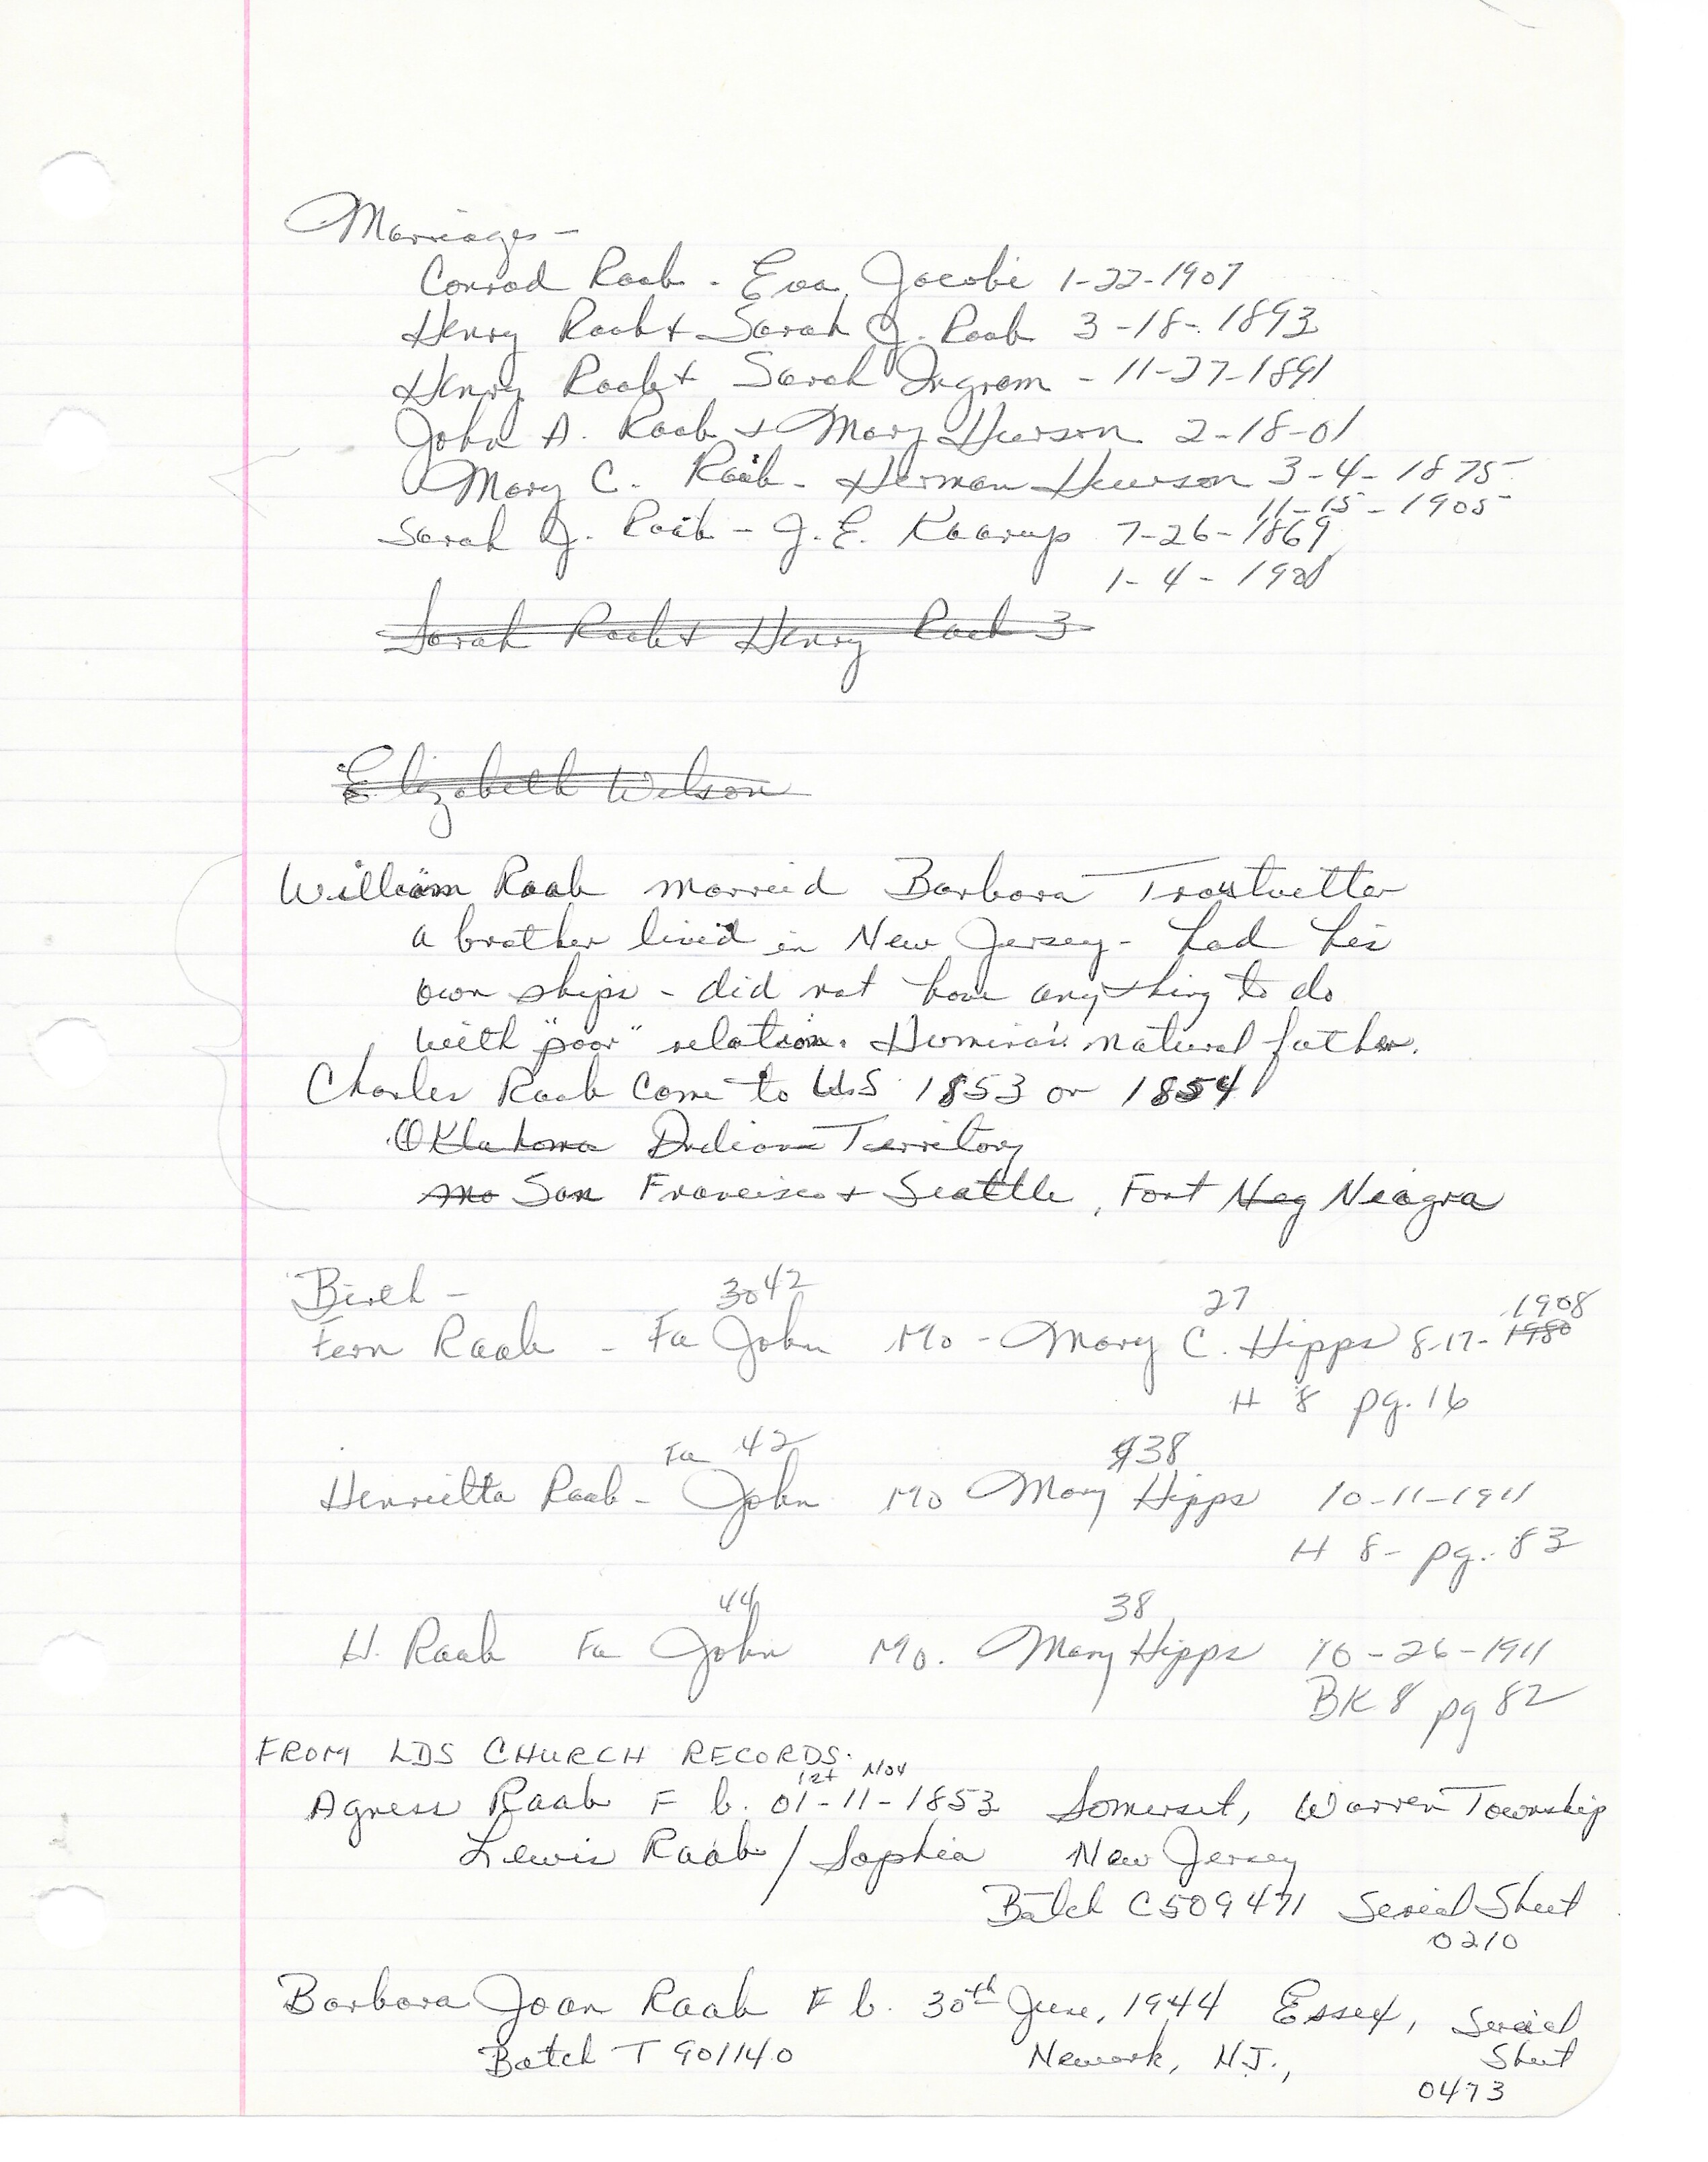 Marriages -
Conrad Raab - Eva Jacobi 1-22-1907
Henry Raab + Sarah J. Raab 3-18-1893
Henry Raab + Sarah Ingram - 11-27-1891
John A. Raab + Mary Hewson 2-18-01
Mary C. Raab - Herman Hewson 3-4-1875
11-15-1905
Sarah J. Raab - J. E. Kaarup 7-26-1869
1-4-1921
Sarah Raab + Henry Raab 3
Elizabeth Wilson
William Raab married Barbara Trostvetter
a brother lived in New Jersey - had his
own ships - did not have anything to do
with "poor" relation. natural father.
Charles Raab come to U.S 1853 or 1854
Oklahoma Indian Territory
San Francisco + Seattle, Fort Neg Niagra
Birth - 30 42 27 1908
Fern Raab - Fa John Mo - Mary C. Hipps 8-17-1980
H 8 pg. 16
Fa 42 38
Henrietta Raab - John Mo Mary Hipps 10-11-1911
H 8 - pg. 83
44 38
H. Raab Fa John Mo. Mary Hipps 10-26-1911
BK 8 pg 82
FROM LDS CHURCH RECORDS.
1st Nov
Agness Raab F b. 01-11-1853 Somerset, Warren Township
Lewis Raab / Sophia New Jersey
Batch C509471 Serial Sheet
0210
Barbara Joan Raab F b. 30th June, 1944 Essex, Serial
Batch T 901140 Newark, N.J., Sheet
0473